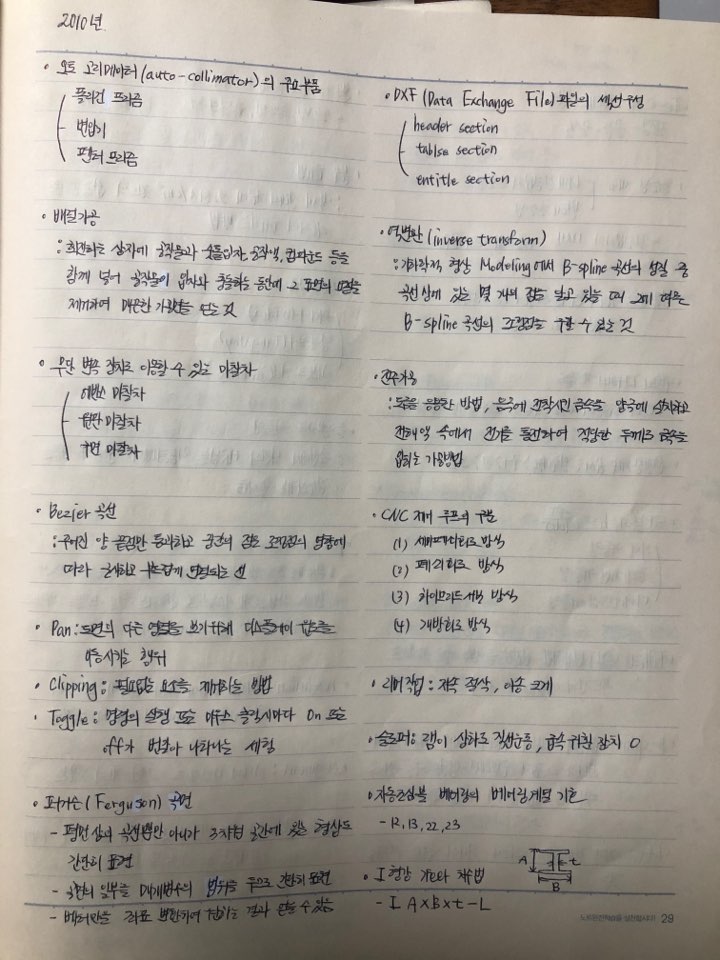 2010년
• 오토 콜리메이터(auto-collimator)의 주요부품
플리건 프리즘
변압기
펜타 프리즘
• 배럴가공
: 회전하는 상자에 공작물과 숫돌입자, 공작액, 컴파운드 등을
함께 넣어 공작물이 입자와 충돌하는 동안에 그 표면의 요철을
제거하여 매끈한 가공면을 얻는 것
• 무단 변속 장치로 이용할 수 있는 마찰차
에반스 마찰차
원판 마찰차
구면 마찰차
• Bezier 곡선
: 주어진 양 끝점만 통과하고 중간의 점은 조정점의 영향에
따라 근사하고 부드럽게 연결되는 선
• Pan : 도면의 다른 영역을 보기위해 디스플레이 윈도를
이동시키는 행위
• Clipping : 필요없는 요소를 제거하는 방법
• Toggle : 명령의 실행 또는 마우스 클릭시마다 On 또는
off가 번갈아 나타나는 세팅
• 퍼거슨(Ferguson) 곡면
- 평면상의 곡선뿐만 아니라 3차원 공간에 있는 형상도
간단히 표현
- 곡면의 일부를 매개변수의 범위를 두므로 간단히 표현
- 벡터만을 좌표 변환하여 원하는 결과 얻을 수 있음
• DXF (Data Exchange File) 파일의 섹션구성
header section
tablse section
entitle section
• 역변환 (inverse transform)
: 기하학적 형상 Modeling에서 B-spline 곡선의 성질 중
곡선상에 있는 몇 개의 점을 알고 있을 때 그에 따른
B-spline 곡선의 조정점을 구할 수 있는 것
• 전주가공
: 도금을 응용한 방법, 음극에 전착시킨 금속을 양극에 설치하고
전해액 속에서 전기를 통전하여 적당한 두께로 금속을
입히는 가공방법
• CNC 제어 루프의 구분
(1) 세미폐쇄회로 방식
(2) 폐쇄회로 방식
(3) 하이브리드서보 방식
(4) 개방회로 방식
• 리머작업 : 저속 절삭, 이송 크게
• 슬로퍼 : 램이 상하로 직선운동, 급속 귀환 장치 O
• 자동조심볼 베어링의 베어링계열 기호
- 12, 13, 22, 23
• I 형강 기호와 치수법
A t
B
- I A×B×t-L
노트완전학습을 실천합시다! 29